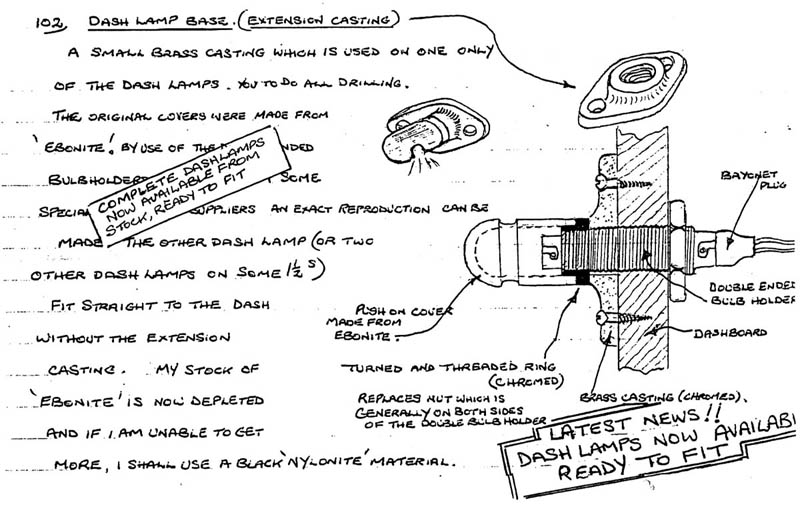 102. DASH LAMP BASE. (EXTENSION CASTING)
A SMALL BRASS CASTING WHICH IS USED ON ONE ONLY
OF THE DASH LAMPS. YOU TO DO ALL DRILLING.
THE ORIGINAL COVERS WERE MADE FROM
'EBONITE'. BY USE OF THE
BULBHOLDERS SOME
SPECIAL SUPPLIERS AN EXACT REPRODUCTION CAN BE
MADE THE OTHER DASH LAMP (OR TWO
OTHER DASH LAMPS ON SOME 1½ S)
FIT STRAIGHT TO THE DASH
WITHOUT THE EXTENSION
CASTING. MY STOCK OF
'EBONITE' IS NOW DEPLETED
AND IF I AM UNABLE TO GET
MORE, I SHALL USE A BLACK 'NYLONITE' MATERIAL.
COMPLETE DASHLAMPS
NOW AVAILABLE FROM
STOCK, READY TO FIT
BAYONET
PLUG
DOUBLE ENDED
BULB HOLDER
DASHBOARD
PUSH ON COVER
MADE FROM
EBONITE.
TURNED AND THREADED RING
(CHROMED)
REPLACES NUT WHICH IS
GENERALLY ON BOTH SIDES
OF THE DOUBLE BULB HOLDER
BRASS CASTING (CHROMED).
LATEST NEWS!!
DASH LAMPS NOW AVAILABL
READY TO FIT